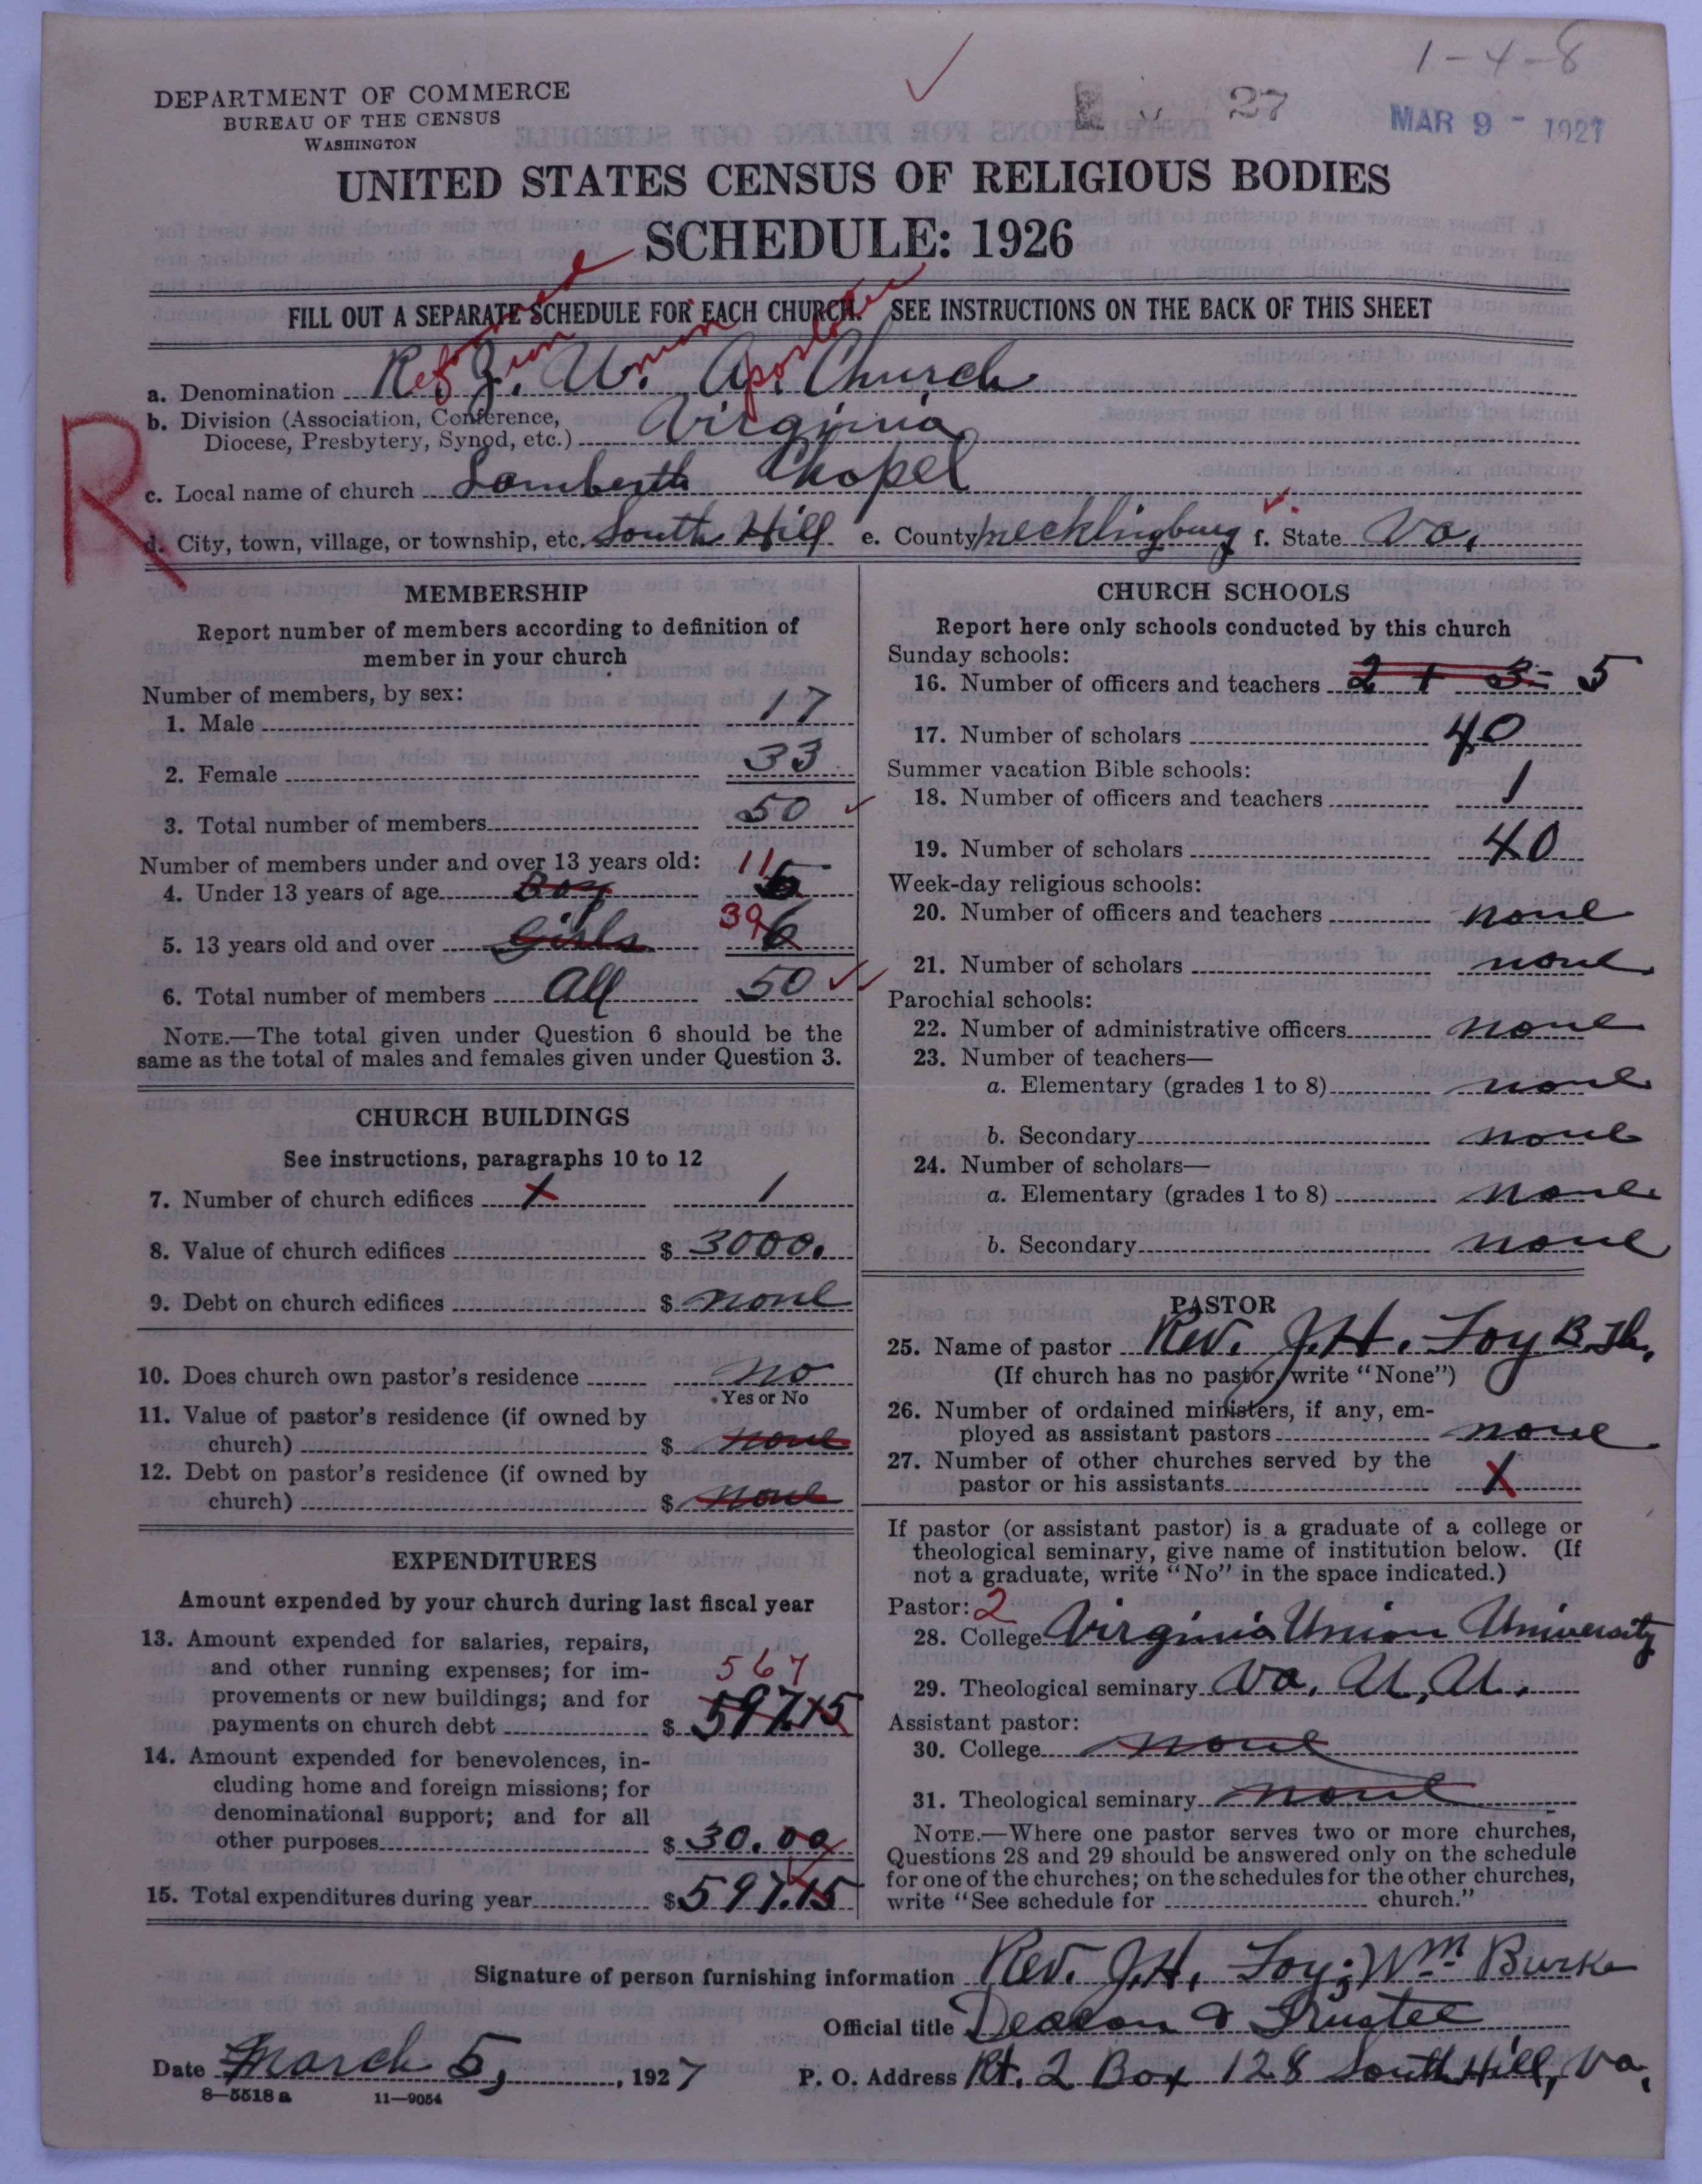 1-4-8
27
MAR 9 - 1927
DEPARTMENT OF COMMERCE
BUREAU OF THE CENSUS
WASHINGTON
UNITED STATES CENSUS OF RELIGIOUS BODIES
SCHEDULE: 1926
FILL OUT A SEPARATE SCHEDULE FOR EACH CHURCH. SEE INSTRUCTIONS ON THE BACK OF THIS SHEET
a. Denomination Ref. Z. U. A. Church
b. Division (Association, Conference,
Diocese, Presbytery, Synod, etc.) Virginia
R
c. Local name of church Lamberth Chapel
d. City, town, village, or township, etc. South Hill e. County Mecklingburg f. State Va.
MEMBERSHIP
Report number of members according to definition of
member in your church
Number of members, by sex:
1. Male 17
2. Female 33
3. Total number of members 50
Number of members under and over 13 years old:
4. Under 13 years of age Boy 11 5
5. 13 years old and over Girls 39 6
6. Total number of members All 50
NOTE.—The total given under Question 6 should be the
same as the total of males and females given under Question 3.
CHURCH BUILDINGS
See instructions, paragraphs 10 to 12
7. Number of church edifices 1 1
8. Value of church edifices $ 3000.
9. Debt on church edifices $ none
10. Does church own pastor's residence no
Yes or No
11. Value of pastor's residence (if owned by
church) $ none
12. Debt on pastor's residence (if owned by
church) $ none
EXPENDITURES
Amount expended by your church during last fiscal year
13. Amount expended for salaries, repairs,
and other running expenses; for im-
567
provements or new buildings; and for
payments on church debt $ 597.15
14. Amount expended for benevolences, in-
cluding home and foreign missions; for
denominational support; and for all
other purposes $ 30.00
15. Total expenditures during year $ 597.15
CHURCH SCHOOLS
Report here only schools conducted by this church
Sunday schools:
16. Number of officers and teachers 2 + 3 = 5
17. Number of scholars 40
Summer vacation Bible schools:
18. Number of officers and teachers 1
19. Number of scholars 40
Week-day religious schools:
20. Number of officers and teachers none
21. Number of scholars none
Parochial schools:
22. Number of administrative officers none
23. Number of teachers—
a. Elementary (grades 1 to 8) none
b. Secondary none
24. Number of scholars—
a. Elementary (grades 1 to 8) none
b. Secondary none
PASTOR
25. Name of pastor Rev. J.H. Foy B.Th.
(If church has no pastor, write "None")
26. Number of ordained ministers, if any, em-
ployed as assistant pastors none
27. Number of other churches served by the
pastor or his assistants 1
If pastor (or assistant pastor) is a graduate of a college or
theological seminary, give name of institution below. (If
not a graduate, write "No" in the space indicated.)
Pastor: 2
28. College Virginia Union University
29. Theological seminary Va. U. U.
Assistant pastor:
30. College none
31. Theological seminary none
NOTE.—Where one pastor serves two or more churches,
Questions 28 and 29 should be answered only on the schedule
for one of the churches; on the schedules for the other churches,
write "See schedule for church."
Signature of person furnishing information Rev. J.H. Foy; Wm Burke
Official title Deacon & Trustee
Date March 5, 1927 P. O. Address Rt. 2 Box 128 South Hill, Va.
8—5518 a 11—9054